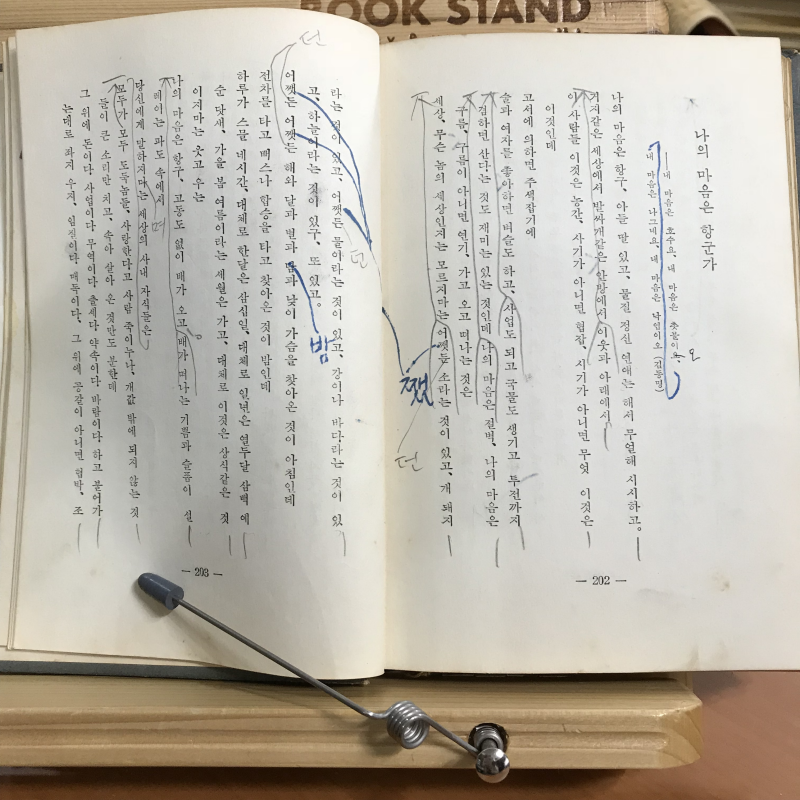 BOOK STAND
나의 마음은 항군가
—내 마음은 호수요, 내 마음은 촛불이요,
내 마음은 나그네요, 내 마음은 낙엽이오 (김동명)
오
나의 마음은 항구, 아들 딸 있고, 물질 정신 연애는 해서 무얼해 시시하고。
거저같은 세상에서 발싸개같은 안방에서 이웃과 아래에서
이 사람들 이것은 농간, 사기가 아니면 협잡, 시기가 아니면 무엇 이것은
이것인데
고서에 의하면 주색잡기에
술과 여자를 좋아하면 벼슬도 하고, 사업도 되고 국물도 생기고 투전까지
겸하면 산다는 것도 재미는 있는 것인데 나의 마음은 절벽, 나의 마음은
구름, 구름이 아니면 연기, 가고 오고 떠나는 것은
세상, 무슨 놈의 세상인지는 모르지마는 어쨋든 소라는 것이 있고, 개 돼지
쨌
던
— 202 —
라는 것이 있고, 어쨋든 물이라는 것이 있고, 강이나 바다라는 것이 있
고, 하늘이라는 것이 있구, 또 있고。
어쨋든 어쨋든 해와 달과 별과 밤과 낮이 가슴을 찾아온 것이 아침인데
던
던
밤
전차를 타고 뻐스나 합승을 타고 찾아온 것이 밤인데
하루가 스물 네시간, 대체로 한달은 삼십일, 대체로 일년은 열두달 삼백 예
순 닷새, 가을 봄 여름이라는 세월은 가고, 대체로 이것은 상식같은 것
이지마는 웃고 우는
나의 마음은 항구, 고동도 없이 배가 오고 배가 떠나는 기쁨과 슬픔이 설
레이는 파도 속에서
며
당신에게 말하지마는 세상의 사내 자식들은
모두가 모두 도둑놈들, 사랑한다고 사람 죽이누나, 개값 밖에 되지 않는 것
들이 큰 소리만 치고, 속아 살아 온 것만도 분한데
그 위에 돈이다 사업이다 무역이다 출세다 약속이다 바람이다 하고 불어가
는대로 좌지 우지, 일진이다 매독이다, 그 위에 공갈이 아니면 협박, 조
— 203 —